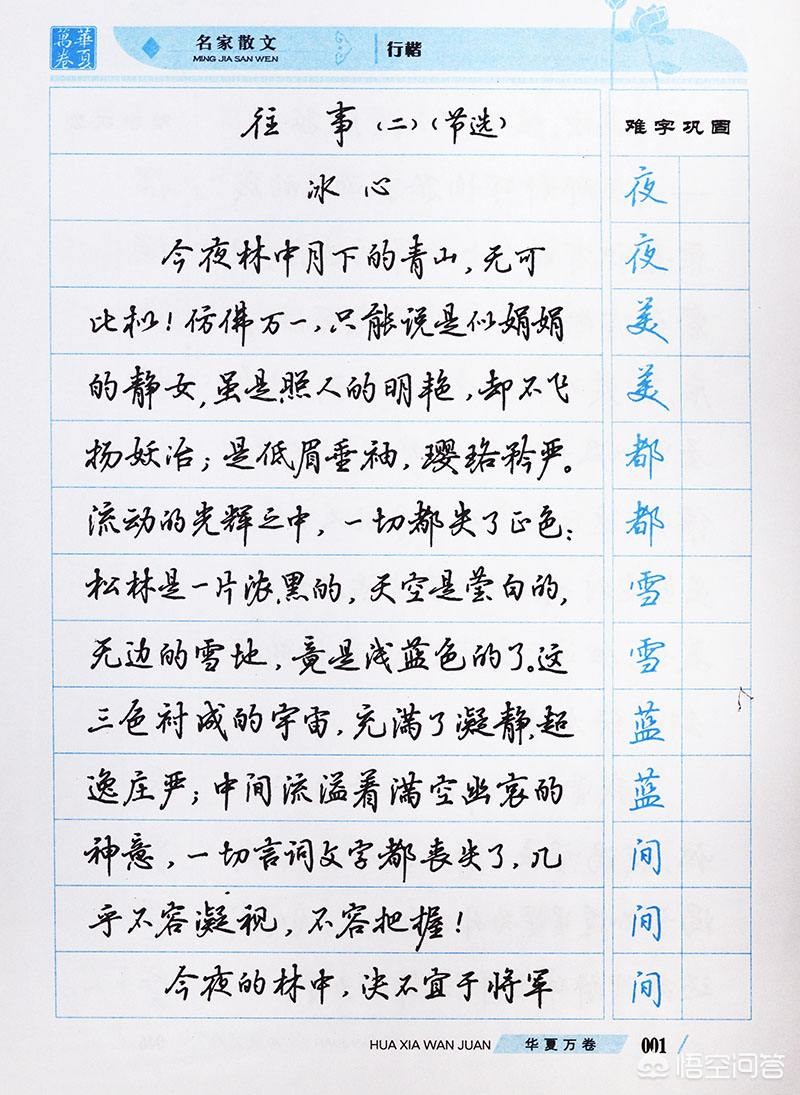 華夏
萬卷
名家散文
MING JIA SAN WEN
行楷
往事(二)(节选)
难字巩固
冰心
夜
今夜林中月下的青山,无可
夜
比拟!仿佛万一,只能说是似娟娟
美
的静女,虽是照人的明艳,却不飞
美
扬妖冶;是低眉垂袖,璎珞矜严。
都
流动的光辉之中,一切都失了正色:
都
松林是一片浓黑的,天空是莹白的,
雪
无边的雪地,竟是浅蓝色的了。这
雪
三色衬成的宇宙,充满了凝静,超
蓝
逸庄严;中间流溢着满空幽哀的
蓝
神意,一切言词文字都丧失了,几
间
乎不容凝视,不容把握!
间
今夜的林中,决不宜于将军
间
HUA XIA WAN JUAN
华夏万卷
001
悟空问答